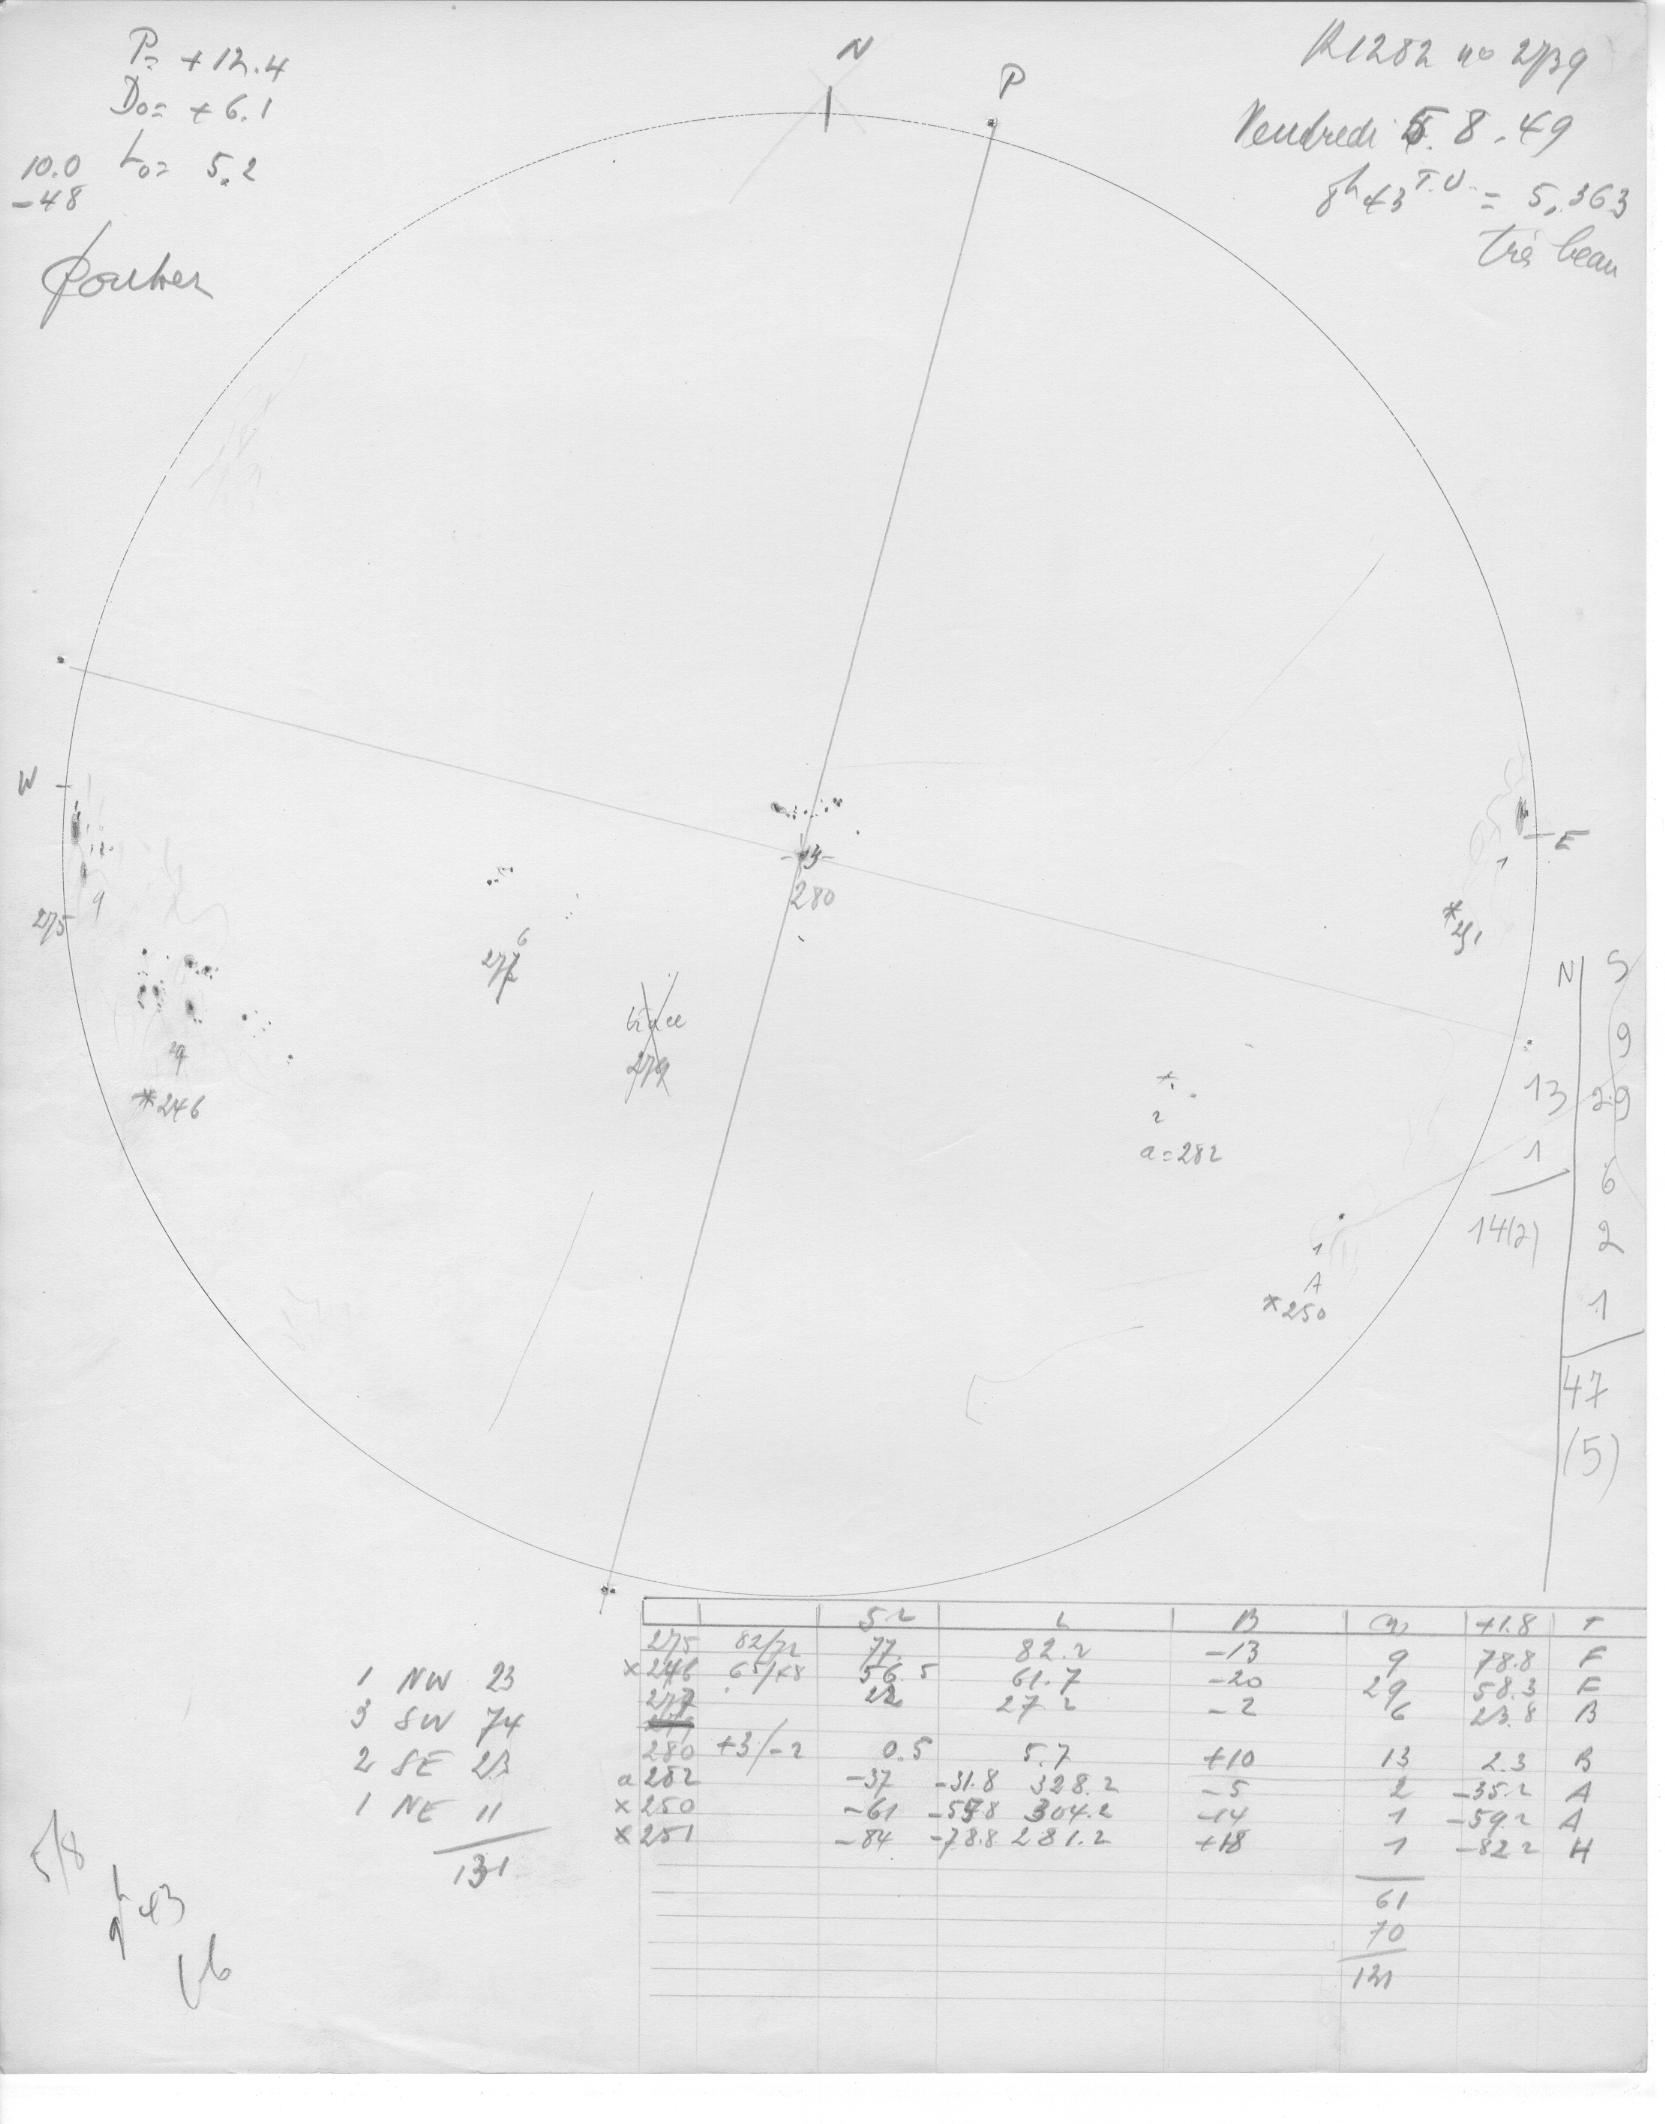 P= +12.4
D₀= +6.1
L₀= 5.2
10.0
-48
N
P
R1282 no 2739
Vendredi 5.8.49
8h43 T.U. = 5,363
très beau
W
E
9
275
29
*246
6
277
279
13
280
1
*251
2
a=282
1
A
*250
N | S
9
13 | 29
1 | 6
14(2) | 2
1
47
(5)
5.2 L B +1.8 T
275 82/72 77. 82.2 -13 9 78.8 F
×246 65/48 56.5 61.7 -20 29 58.3 F
277 22 27.2 -2 6 23.8 B
280 +3/-2 0.5 5.7 +10 13 2.3 B
a 282 -37 -31.8 328.2 -5 2 -35.2 A
×250 -61 304.2 -14 1 -59.2 A
×251 -84 -78.8 281.2 +18 1 -82.2 H
61
70
131
1 NW 23
3 SW 74
2 SE 23
1 NE 11
131
5/8